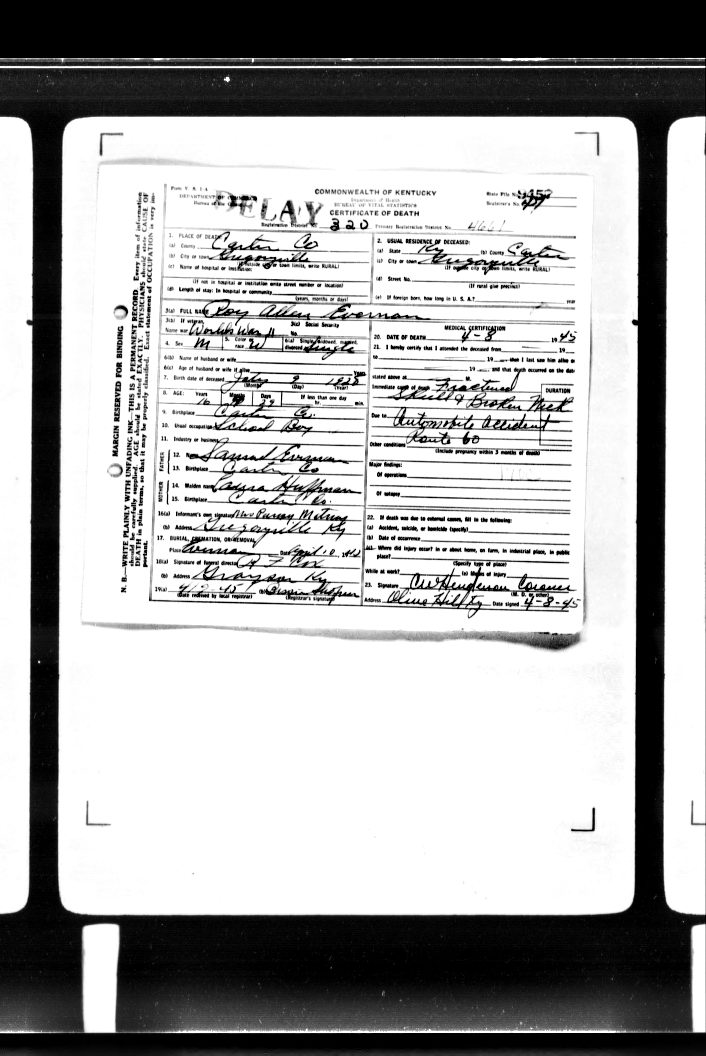 Form V. S. 1 A
COMMONWEALTH OF KENTUCKY
DEPARTMENT OF
DELAY
Department of Health
BUREAU OF VITAL STATISTICS
CERTIFICATE OF DEATH
State File No.
Registrar's No.
Registration District No. 320
Primary Registration District No. 4661
MARGIN RESERVED FOR BINDING
N. B.—WRITE PLAINLY WITH UNFADING INK—THIS IS A PERMANENT RECORD. Every item of information
should be carefully supplied. AGE should be stated EXACTLY. PHYSICIANS should state CAUSE OF
DEATH in plain terms, so that it may be properly classified. Exact statement of OCCUPATION is very im-
portant.
1. PLACE OF DEATH
(a) County Carter Co
(b) City or town Gregoryville
(If outside city or town limits, write RURAL)
(c) Name of hospital or institution:
(If not in hospital or institution write street number or location)
(d) Length of stay: In hospital or community
(years, months or days)
2. USUAL RESIDENCE OF DECEASED:
(a) State Ky (b) County Carter
(c) City or town Gregoryville
(If outside city or town limits, write RURAL)
(d) Street No.
(If rural give precinct)
(e) If foreign born, how long in U. S. A.? year
3(a) FULL NAME Roy Allen Everman
3(b) If veteran,
Name war World's War II
3(c) Social Security
No.
4. Sex M
5. Color or
race W
6(a) Single, widowed, married,
divorced Single
6(b) Name of husband or wife
6(c) Age of husband or wife if alive Years
7. Birth date of deceased July 9
(Month) (Day) (Year)
8. AGE: Years Months Days If less than one day
16 29 hr. min.
9. Birthplace Carter Co.
10. Usual occupation School Boy
11. Industry or business
FATHER
12. Name Samuel Everman
13. Birthplace Carter Co
MOTHER
14. Maiden name Laura Huffman
15. Birthplace Carter Co.
16(a) Informant's own signature Mrs
(b) Address Gregoryville Ky
17. BURIAL, CREMATION, OR REMOVAL
Place Everman Date April 10, 19
18(a) Signature of funeral director
(b) Address Grayson Ky
19(a) 45 (b)
(Date received by local registrar) (Registrar's signature)
MEDICAL CERTIFICATION
20. DATE OF DEATH 4-8 1945
21. I hereby certify that I attended the deceased from 19
to 19 that I last saw him alive o
19 and that death occurred on the date
stated above at M.
Immediate cause of death Fractured
Skull & Broken Neck
DURATION
Due to Automobile accident
Route 60
Other conditions
(Include pregnancy within 3 months of death)
Major findings:
Of operations
Of autopsy
22. If death was due to external causes, fill in the following:
(a) Accident, suicide, or homicide (specify)
(b) Date of occurrence
(c) Where did injury occur? in or about home, on farm, in industrial place, in public
place?
(Specify type of place)
While at work? (e) Means of injury
23. Signature CW Henderson Coroner
(M. D. or other)
Address Olive Hill Ky Date signed 4-8-45